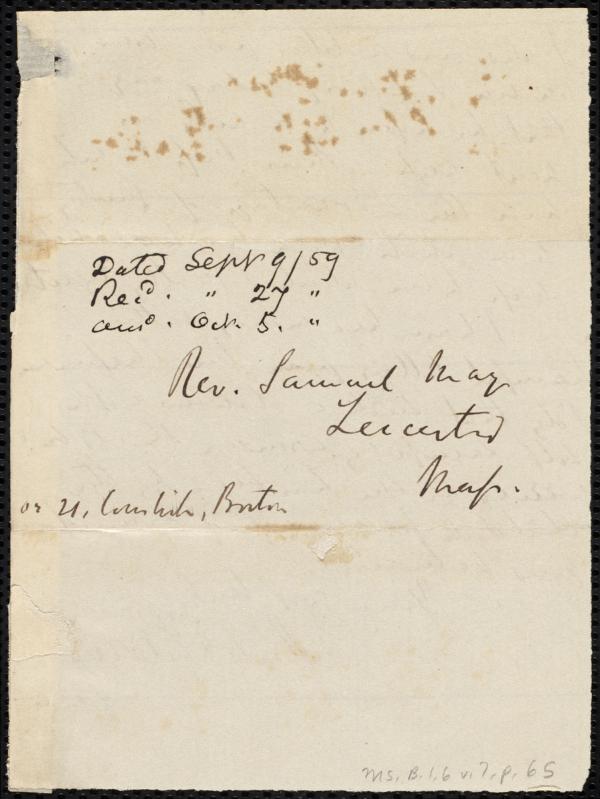 Dated Sept 9/59
Rec'd. " 27 "
ans'd. Oct. 5. "
Rev. Samuel May
Leicester
Mass.
or 21, Cornhill, Boston
MS. B. 1. 6 v. 7, p. 65